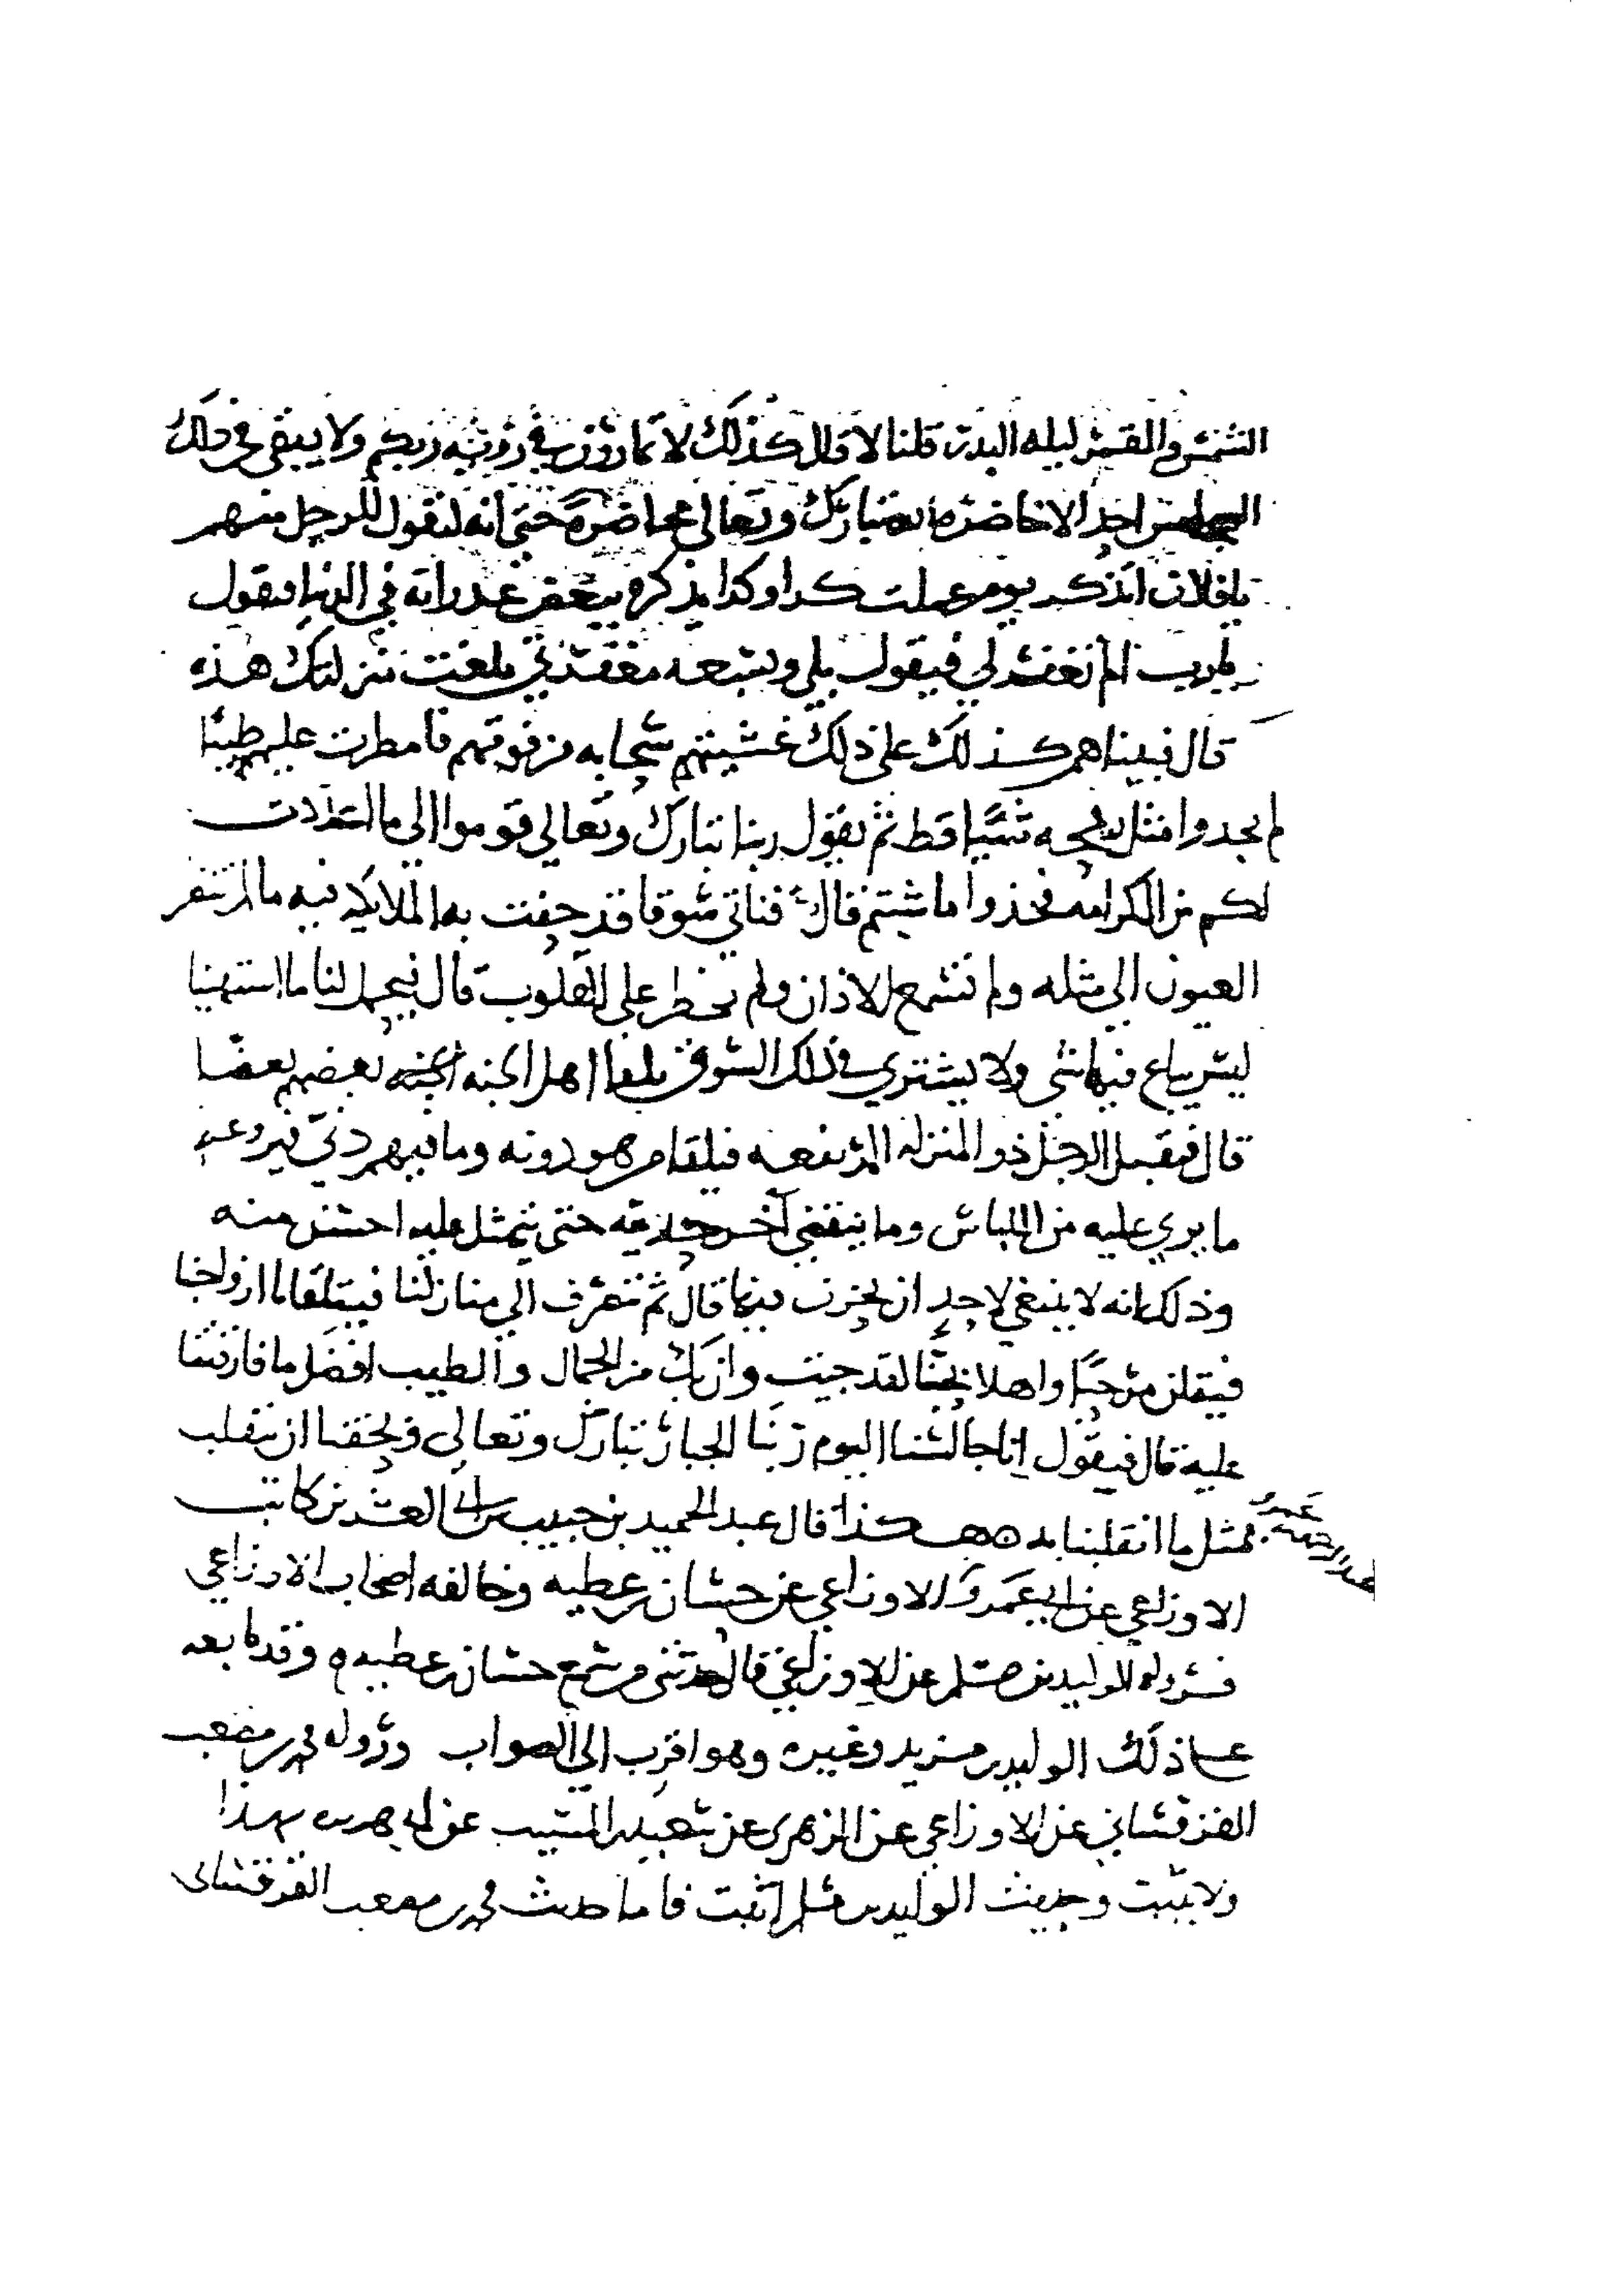 الشمس والقمر ليله البدر قلنا لا قال كذلك لا تمارون في رؤيه ربكم ولا يبقى في ذلك
المجلس احد الا حاضره الله تبارك وتعالى محاضرة حتى انه ليقول للرجل منهم
يا فلان اتذكر يوم عملت كذا وكذا يذكره ببعض غدراته في الدنيا فيقول
يا رب الم تغفر لي فيقول بلى وبسعه مغفرتي بلغت منزلتك هذه
قال فبينا هم كذلك على ذلك غشيتهم سحابه من فوقهم فامطرت عليهم طيبا
لم يجدوا مثل ريحه شيا قط ثم يقول ربنا تبارك وتعالى قوموا الى ما اعددت
لكم من الكرامه فخذوا ما شيتم قال فناتي سوقا قد حفت به الملايكه فيه ما لم تنظر
العيون الى مثله ولم تسمع الاذان ولم يخطر على القلوب قال فيحمل لنا ما اشتهينا
ليس يباع فيها شي ولا يشترى في ذلك السوق يلقا اهل الجنه بعضهم بعضا
قال فيقبل الرجل ذو المنزله المرتفعه فيلقا من هو دونه وما فيهم دني فيروعه
ما يرى عليه من اللباس وما ينقضي اخر حديثه حتى يتمثل عليه احسن منه
وذلك انه لا ينبغي لاحد ان يحزن فيها قال ثم ننصرف الى منازلنا فيتلقانا ازواجنا
فيقلن مرحبا واهلا بحبنا لقد جيت وان بك من الجمال والطيب افضل ما فارقتنا
عليه قال فيقول انا جالسنا اليوم ربنا الجبار تبارك وتعالى ويحقنا ان ننقلب
بمثل ما انقلبنا به هكذا قال عبد الحميد بن حبيب بن ابي العشرين كاتب
الاوزاعي عن ابي عمرو الاوزاعي عن حسان بن عطيه وخالفه اصحاب الاوزاعي
فرواه الوليد بن مسلم عن الاوزاعي قال حدثني من سمع حسان بن عطيه وقد تابعه
على ذلك الوليد بن مزيد وغيره وهو اقرب الى الصواب ورواه محمد بن مصعب
القرقساني عن الاوزاعي عن الزهري عن سعيد بن المسيب عن ابي هريره بهذا
ولا يثبت وحديث الوليد بن مسلم اثبت فاما حديث محمد بن مصعب القرقساني